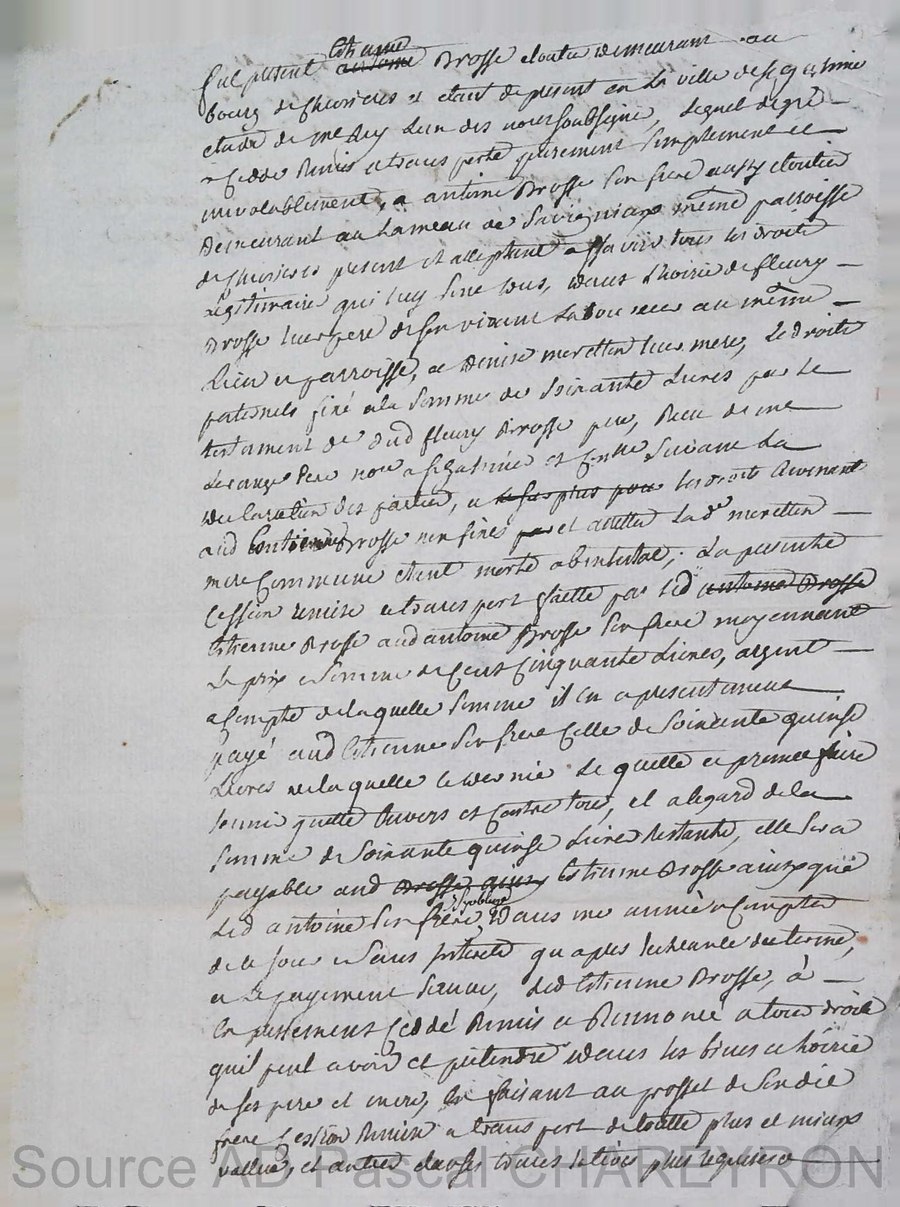 Estienne
fut present antoine Brosse cloutier demeurant au
bourg de chevrieres et etant de present en la ville de St galmier
etude de me Rey l'un des nores soussigné, lequel de gré
a ceddé Remis et transporté purement simplement et
irrevocablement, a antoine Brosse son frere aussy cloutier
demeurant au hameau de même parroisse
de chevrieres present et acceptant assavoir tous les droits
Legitimaire qui luy sont dus, dans l'hoirie de fleury
Brosse leur pere de son vivant au même
Lieu et parroisse, et Denise meretton leur mere, Les droits
paternels fixé a la somme de soixante Livres par le
testament de dud fleury Brosse pere, Recu de me
nore a St galmier et controllé suivant la
declaration des parties, et le surplus pour les droits
aud Estienne Brosse non fixés par et attendu la de meretton
mere commune etant morte abintestat; La presente
cession remise et transport faitte par led antoine Brosse
Estienne Brosse aud antoine Brosse son frere moyennant
Le prix et somme de cent cinquante Livres, argent
a compte de laquelle somme il en a presentement
payé aud Estienne son frere celle de soixante quinze
Livres de laquelle le quitte et promet faire
tenir quitte Envers et contre tous, et a legard de la
somme de soixante quinze Livres restante, elle sera
payable aud Brosse Estienne Brosse ainsy que
s'y oblige
Led antoine son frere, Dans une année a compter
de ce jour et sans interets qu apres lecheance du terme,
et Le payement led Estienne Brosse, à
ceddé Remis et Renoncé a tous droits
quil peut avoir et pretendre dans les biens et hoirie
de ses pere et mere, En faisant au proffit de sondit
frere cession Remise et transport de toutte plus et mieux
vallue, et autres clauses translatives plus requises
Source AD Pascal CHAREYRON